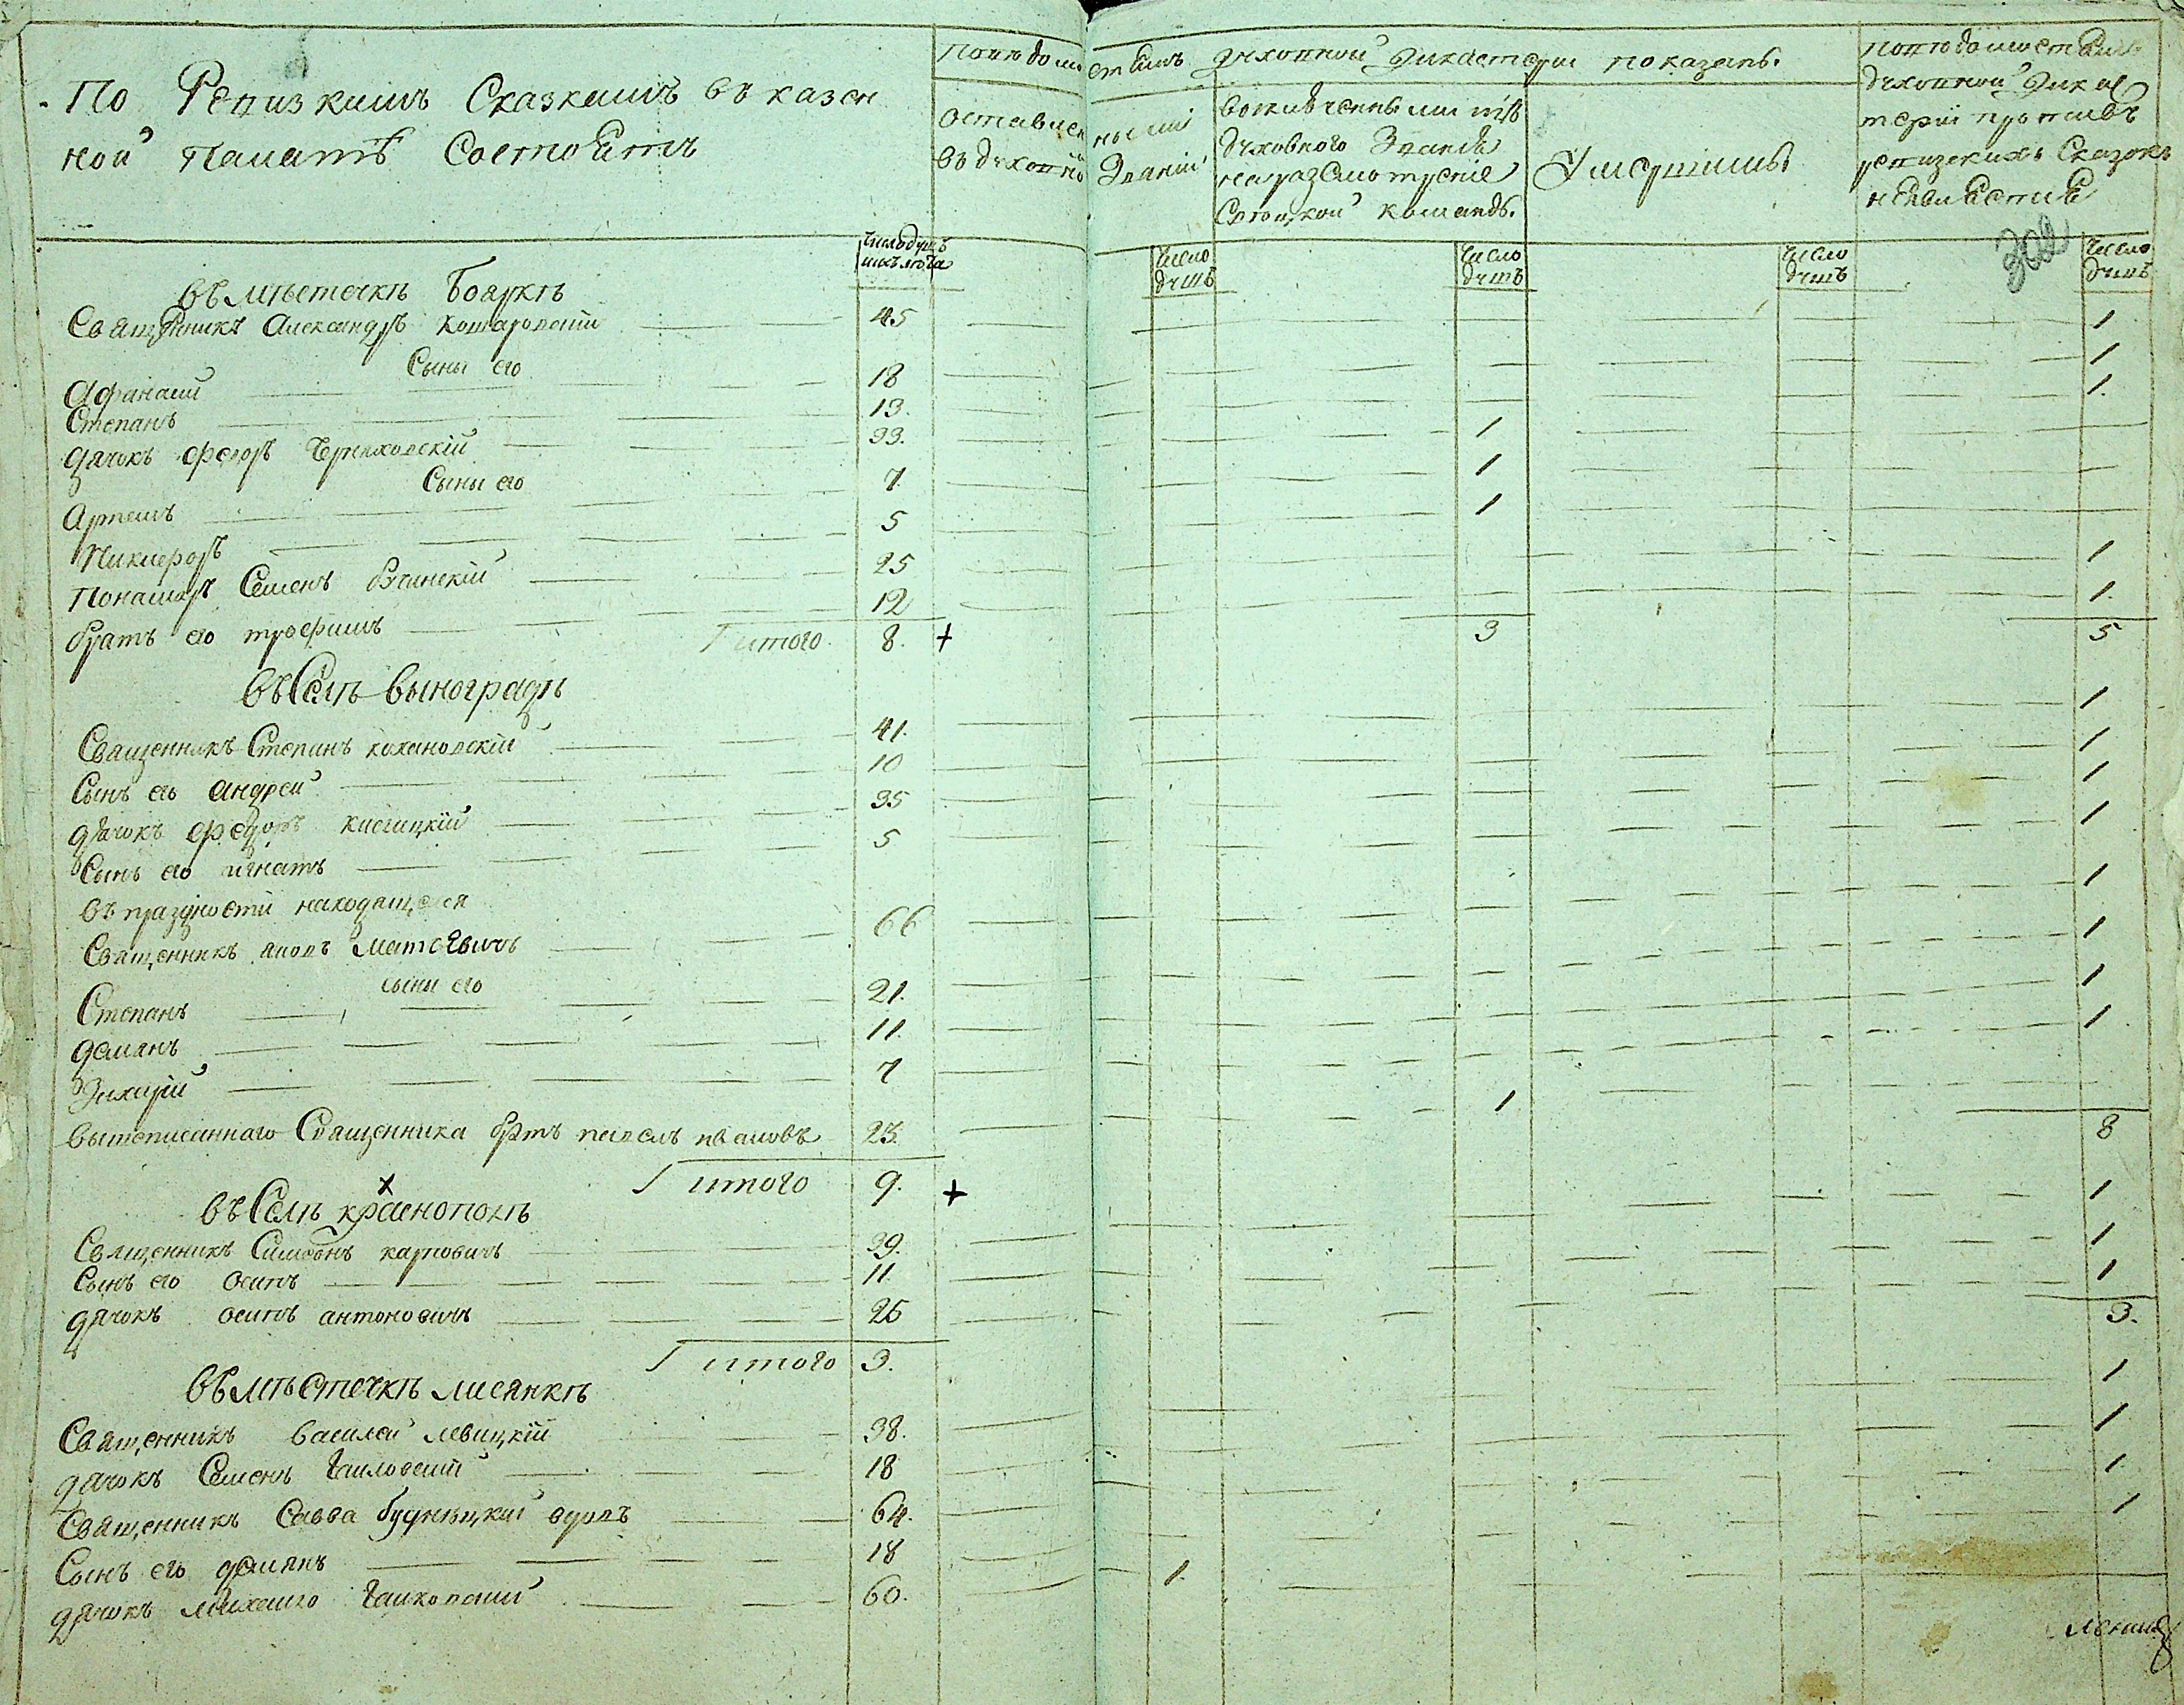 По Ревизкимъ Сказкамъ въ казен
ной палатѣ Состоитъ
Повѣдомостямъ духовной Дикастерии показанъ.
Оставленными
въ духовно Званіи
во
духовного Званія
на разсмотреніе
Свѣцкой команды.
Умершимъ
Повѣдомостямъ
духовной Дикас
теріи противъ
ревизскихъ Сказокъ
неявѣствъ
302
число душъ
число душъ
число душъ
число душъ
число душъ
въ мѣстечкѣ Бояркѣ
Священникъ Александръ Комаровский 45 1
Сыны его
Афанасий 18 1
Степанъ 13. 1.
Дячокъ Федоръ Черняховскій 33. 1
Сыны его
Артемъ 7 1
Никифоръ 5 1
Понамарь Семенъ бучинскій 25 1
братъ его трофимъ 12 1.
итого. 8. + 3 5
въ Селѣ выноградѣ
Священникъ Степанъ кохановскій 41. 1
Сынъ его андрей 10 1
дячокъ федоръ кислицкій 35 1
Сынъ его игнатъ 5 1
въ праздности находящейся
Священникъ яковъ Матеѣвичъ 66 1
сыны его
Степанъ 21. 1
демянъ 11. 1
Захарій 7 1
вышеписаннаго Священника братъ павелъ ивановъ 23. 1
итого 9. + 8
въ Селѣ краснополѣ
Священникъ Симеонъ карповичъ 39. 1
Сынъ его осипъ 11 1
дячокъ осипъ антоновичъ 26 1
итого 3. 3.
въ мѣстечкѣ лисянкѣ
Священникъ василей левицкій 38. 1
дячокъ Семенъ 18 1
Священникъ Савва будницкий вдовъ 64. 1
Сынъ его демянъ 18 1
дячокъ михайло 60. 1.